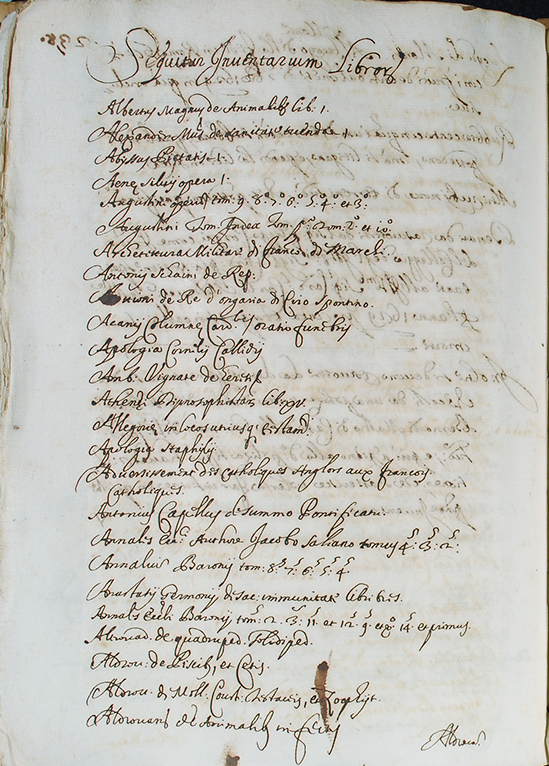 238.
Sequitur Inventarium Librorum
Albertus Magnus de Animalibus lib. 1.
Alexander de sanitate tuenda 1.
Abissus Pietatis 1.
Aeneae Silvij opera 1.
Augustini opera tom: 9. 8.° 7.° 6.° 5.° 4.° et 3.°
Augustini Tom: Index Tom. 2.° et 10.°
Architettura Militar di Franco. di Marchi.
Antonij de Rep.
Attioni de Re d'Ongaria di Ciro Spontino.
Ascanij Columnae Card.lis oratio funebris
Apologia Cornelij Callidij
Amb. Vignate de
Athenei Dipnosophistar. libr. xv.
Allegoriae in locos utriusq. Testam.
Apologia Staphylij
Advertissement des Catholiques Anglois aux francois
Catholiques.
Antonius Cappellus de summo Pontificatu.
Annales Authore Jacobo Saliano tomus 4.s 3.s 2.s
Annalium Baronij tom: 8.s 7.s 6.s 5.s 4.s
Anastatij Germonij de sac. immunitat. libri tres.
Annales Eccli. Baronij tom. 2. 3. 11. et 12. 9. et 14. et primus.
Aldrovad. de quadruped. solidiped.
Aldrov. de Piscib. et Cetis.
Aldrov. d. Moll. Crust. Testaceis, et Zoophyt.
Aldrovand. de Animalib. insectis
Aldrovad.